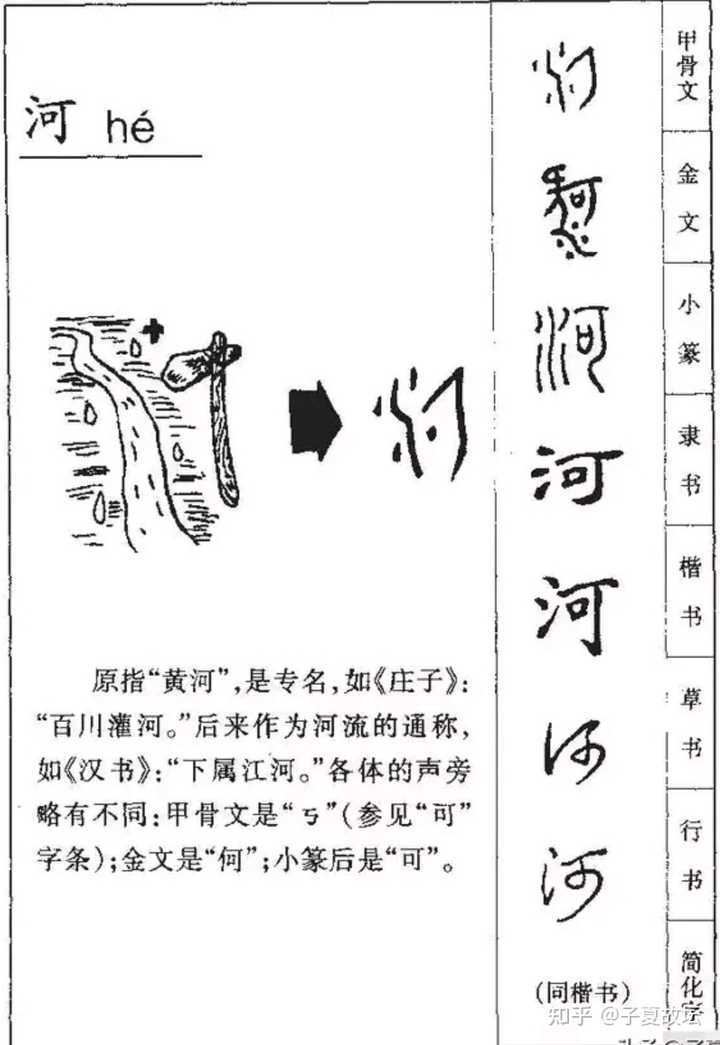 河 hé
原指“黄河”,是专名,如《庄子》:
“百川灌河。”后来作为河流的通称,
如《汉书》:“下属江河。”各体的声旁
略有不同:甲骨文是“丂”(参见“可”
字条);金文是“何”;小篆后是“可”。
甲骨文
金文
小篆
河
隶书
河
楷书
河
草书
河
行书
河
简化字
(同楷书)
知乎 @子夏故坛